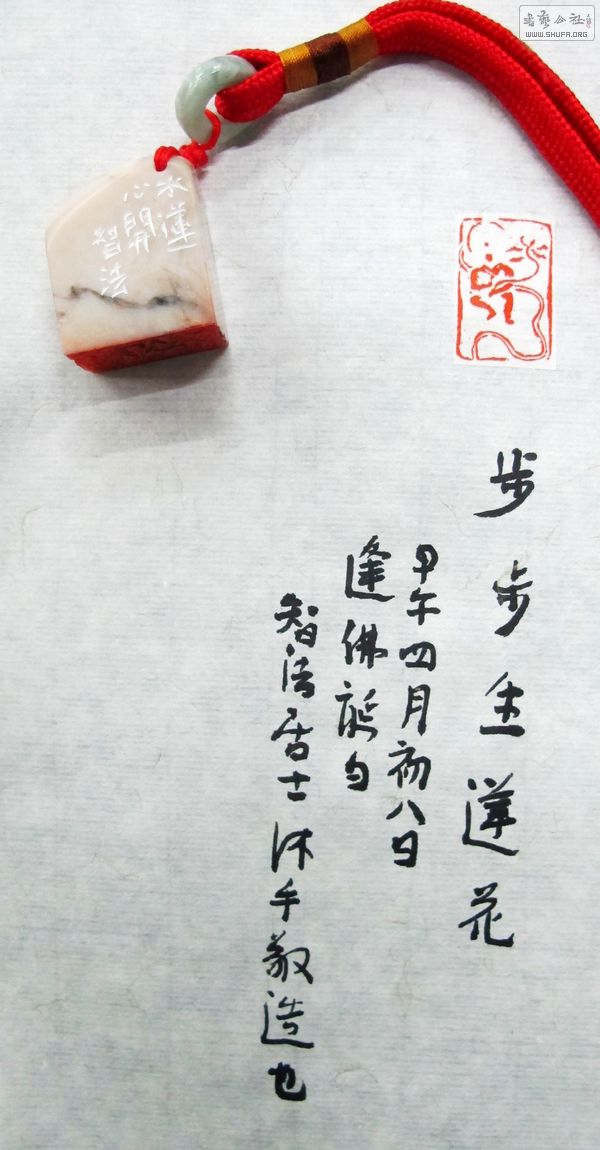 步步生莲花
甲午四月初八日
逢佛诞日
智法居士沐手敬造也
水莲
心開
智法
書藝公社
WWW.SHUFA.ORG